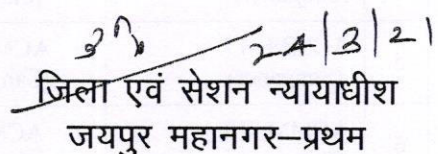 24/3/21
जिला एवं सेशन न्यायाधीश
जयपुर महानगर–प्रथम